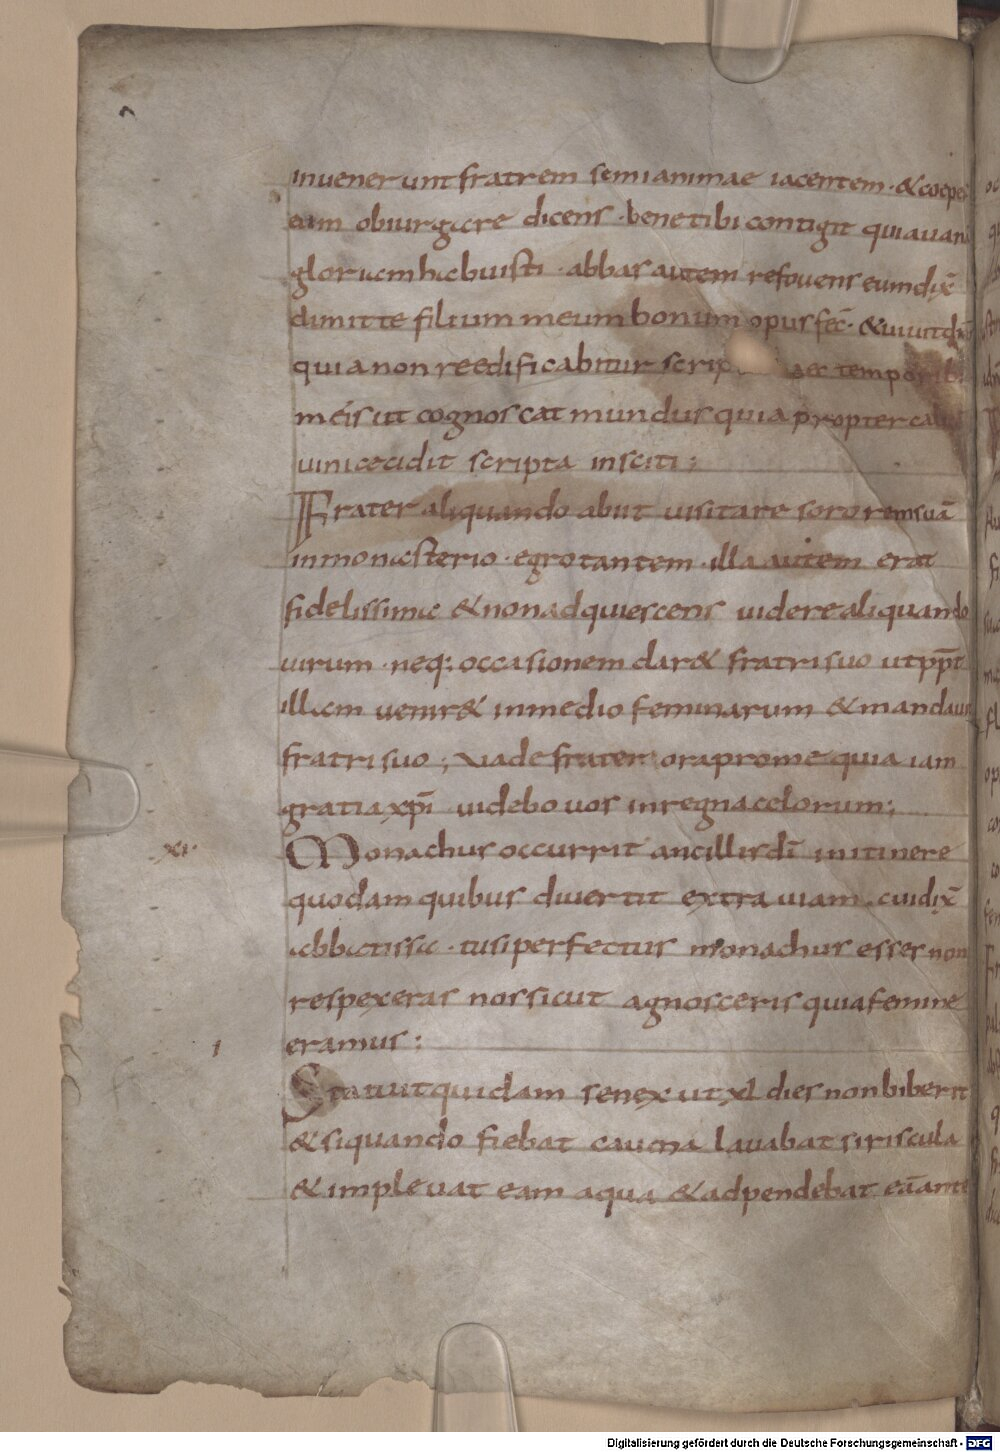 inuenerunt fratrem semianimae iacentem · & coeper
eum obiurgare dicens · bene tibi contigit quia uana
gloriam habuisti · abbas autem refouens eum dix̄
dimitte filium meum bonum opus fec̄ · & uiuit dn̄s
quia non reedificabitur scrip haec temporib
meis ut cognoscat mundus quia propter
uini cecidit scripta in sciti ;
Frater aliquando abiit uisitare sororem suā
in monasterio · egrotantem · illa autem erat
fidelissima & non adquiescens uidere aliquando
uirum · neq; occasionem dar& fratri suo ut pp̄t
illam uenir& in medio feminarum & mandauit
fratri suo ; Uade frater ora pro me quia iam
gratia xp̄i uidebo uos in regna celorum ;
xi· Monachus occurrit ancillis dī in itinere
quodam quibus diuertit extra uiam · cui dix̄
abbatissa · tu si perfectus monachus esses non
respexeras nos sicut agnosceris quia femine
eramus :
Statuit quidam senex ut xl dies non biberit
& si quando fiebat cauma lauabat siriscula
& impleuat eam aqua & adpendebat eā ante
Digitalisierung gefördert durch die Deutsche Forschungsgemeinschaft - DFG